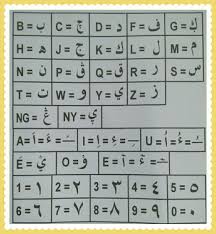 B = ب C = چ D = د F = ف G = ݢ
H = ه J = ج K = ك L = ل M = م
N = ن P = ڤ Q = ق R = ر S = س
T = ت W = و Y = ي Z = ز
NG = غ NY = ي
A = I = U =
É = ي O = و E =
1 = ١ 2 = ٢ 3 = ٣ 4 = ٤ 5 = ٥
6 = ٦ 7 = ٧ 8 = ٨ 9 = ٩ 0 = ٠